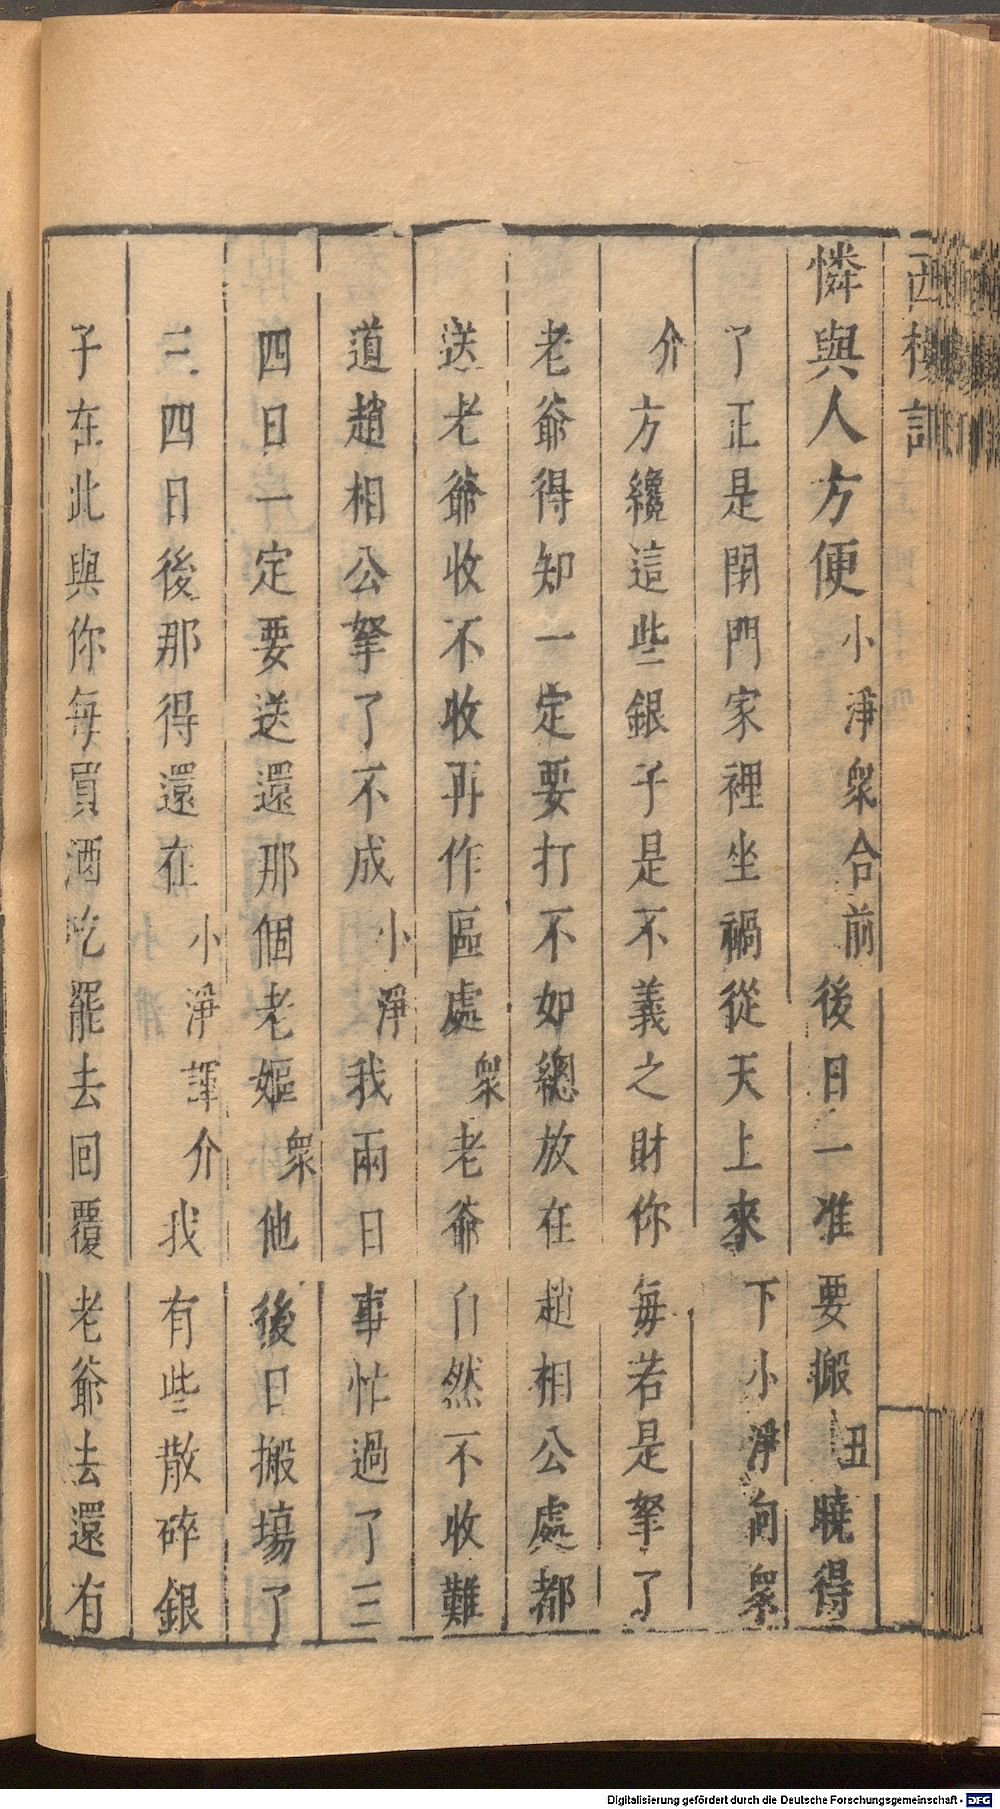 西樓記
憐與人方便小淨衆合前後日一准要搬丑曉得
了正是閉門家裡坐禍從天上來下小淨向衆
介方纔這些銀子是不義之財你每若是拏了
老爺得知一定要打不如總放在趙相公處都
送老爺收不收再作區處衆老爺自然不收難
道趙相公拏了不成小淨我兩日事忙過了三
四日一定要送還那個老嫗衆他後日搬塲了
三四日後那得還在小淨諢介我有些散碎銀
子在此與你每買酒吃罷去回覆老爺去還有
Digitalisierung gefördert durch die Deutsche Forschungsgemeinschaft - DFG